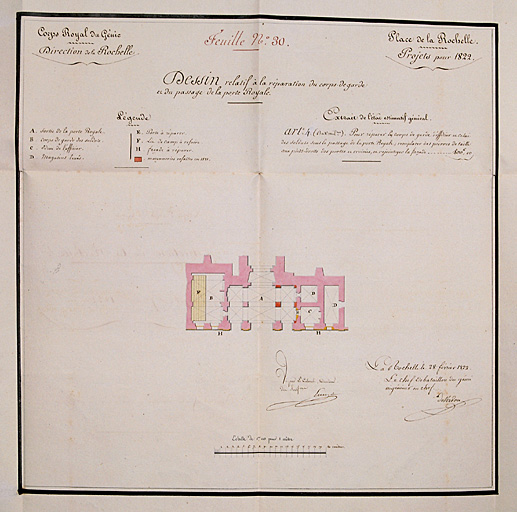 Corps Royal du Génie
Direction de la Rochelle.
Feuille N.° 30.
Place de la Rochelle.
Projets pour 1822.
Dessin relatif à la réparation du corps de garde
et du passage de la porte Royale.
Légende
A. Sortie de la porte Royale.
B. Corps de garde des soldats.
C. Idem de l'officier.
D. Magasins
E. Porte à réparer
F. Lit de camp à refaire
H façade à réparer
maçonneries refaites en
Extrait de l'état estimatif général.
Art. 4 Pour réparer le corps de garde d'officier et celui
des soldats sous le passage de la porte Royale; remplacer des pierres de taille
aux pieds-droits des portes et rejointoyer la façade
F
B
A
D
D
C
H
H
La Rochelle le 28 février 1822
Le chef de bataillon du génie
ingénieur en chef
Echelle de pour mètre